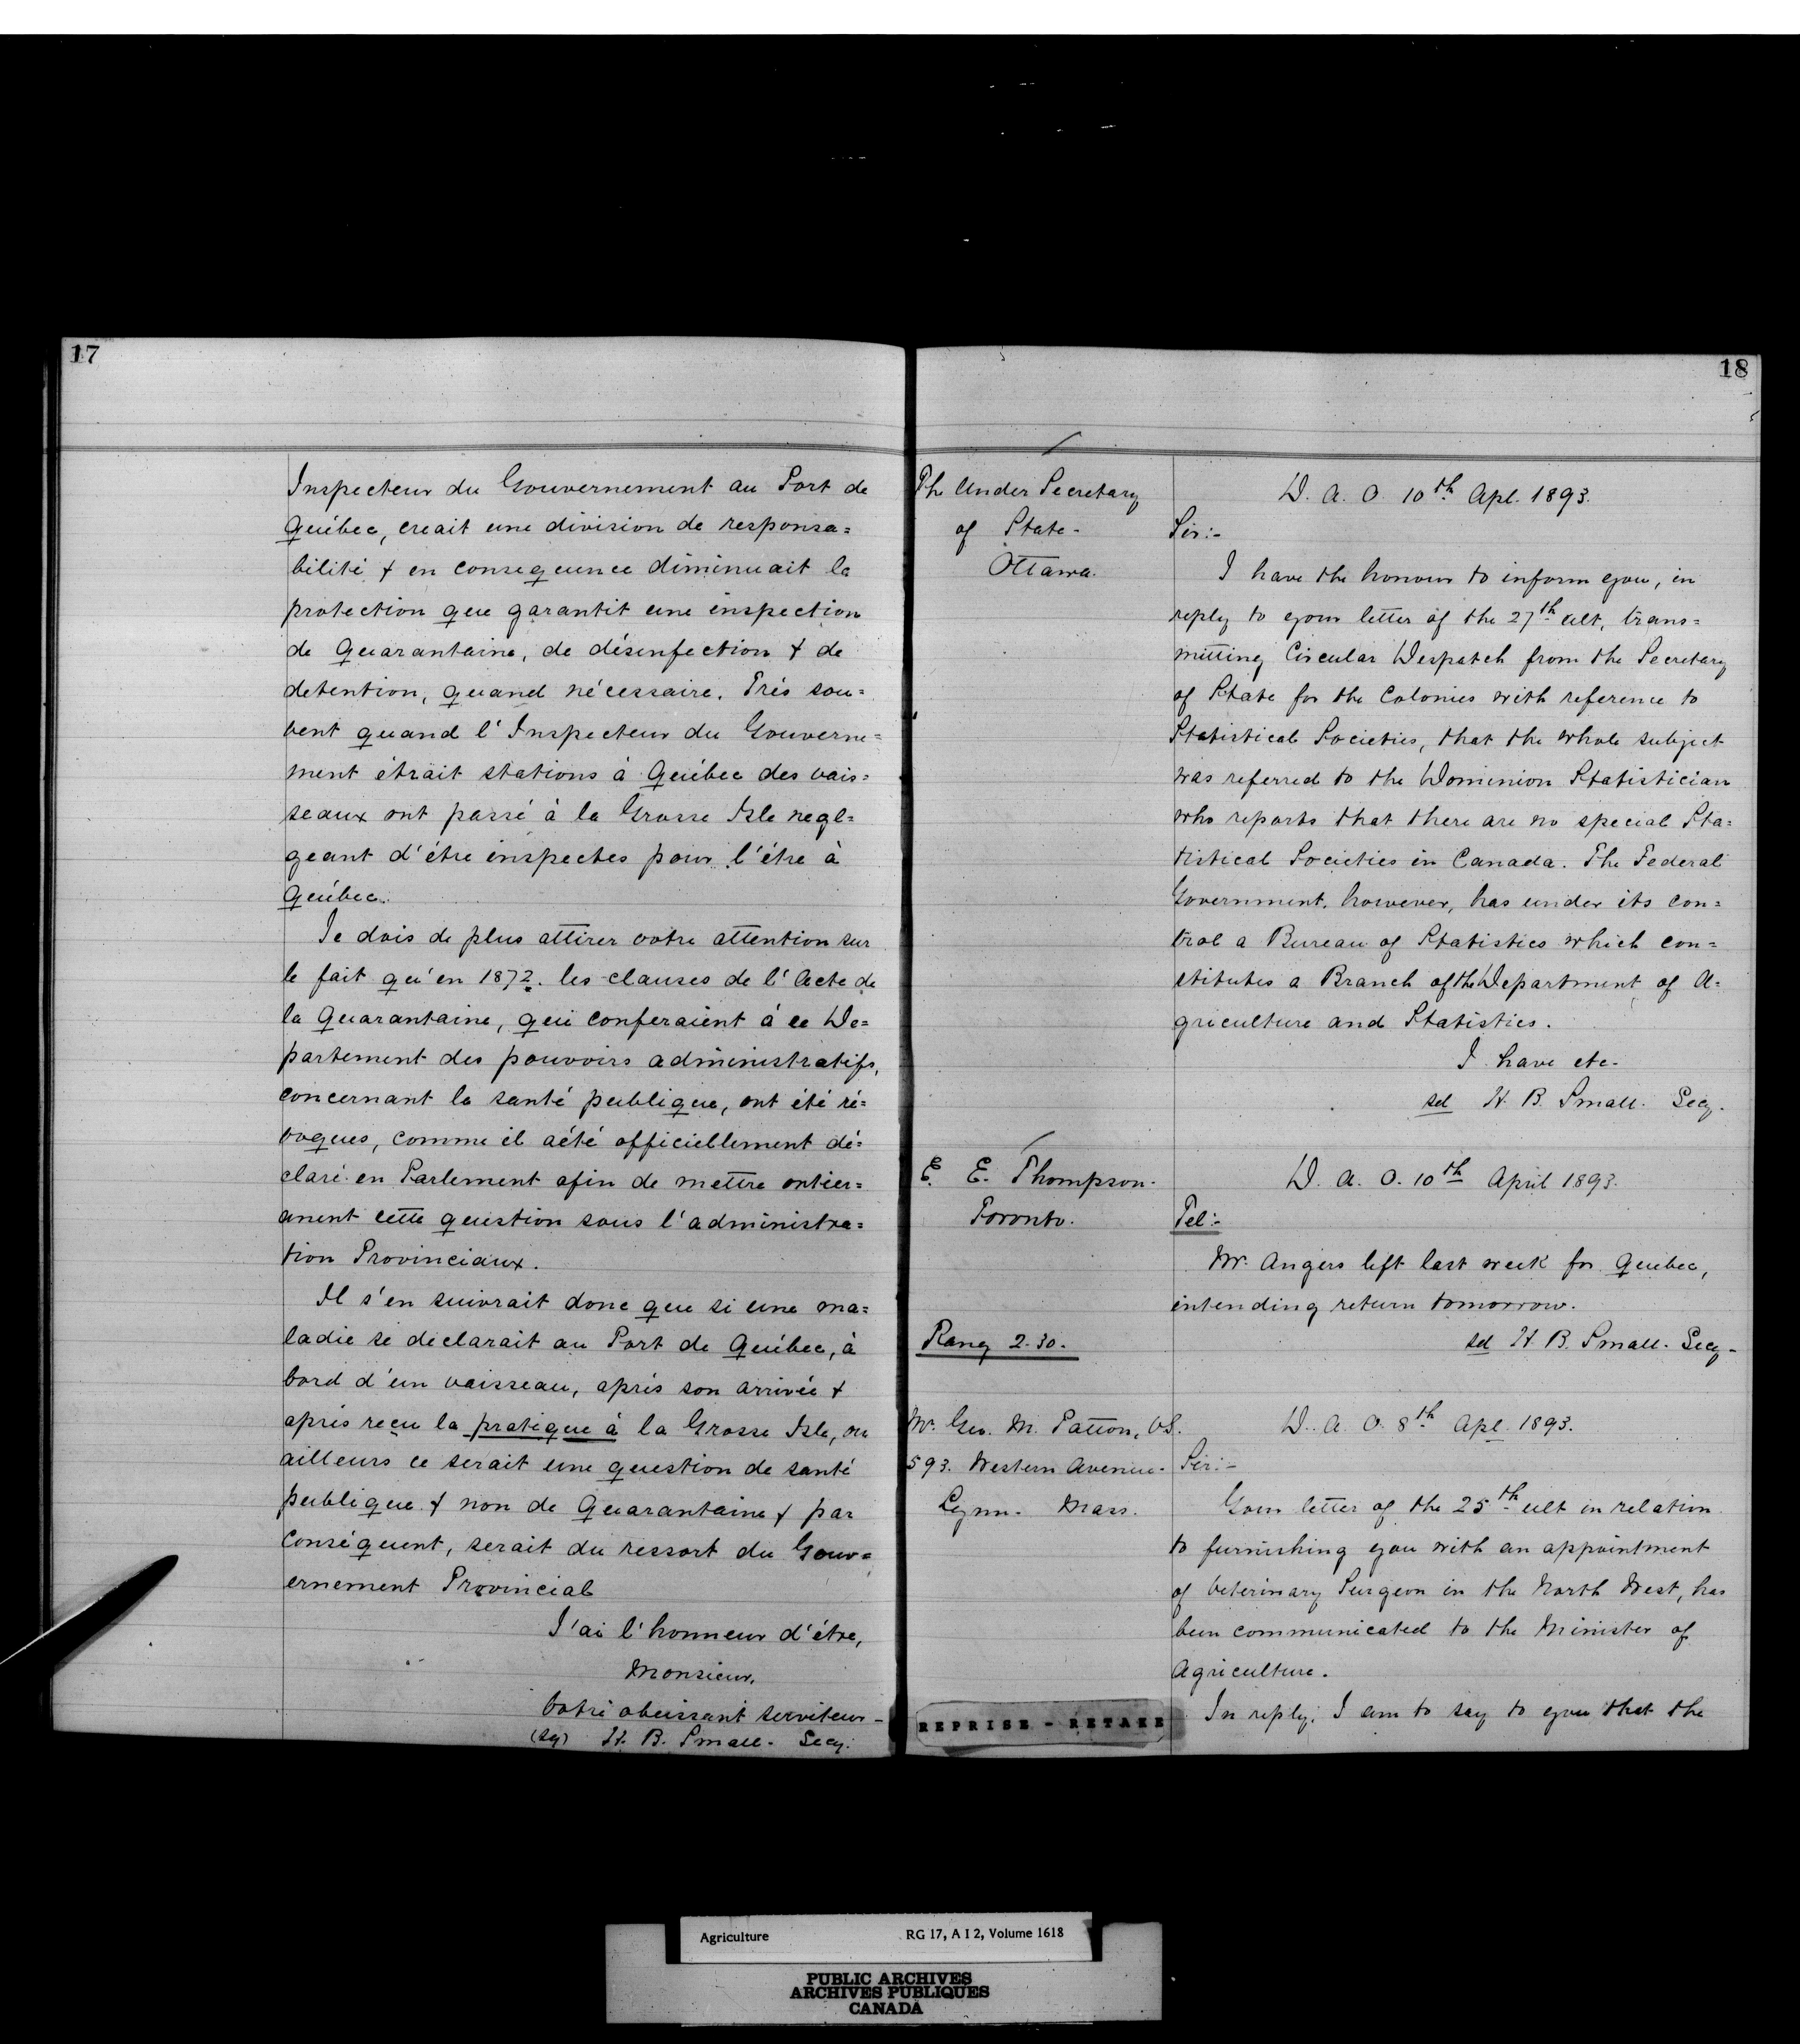 17
Inspecteur du Gouvernement au Port de
Québec, creait une division de responsa=
bilité & en consequence diminuait la
protection que garantit une inspection
de Quarantaine, de désinfection & de
detention, quand nécessaire. Très sou=
vent quand l'Inspecteur du Gouverne=
ment étrait stations à Québec des vais=
seaux ont passé à la Grosse Isle negl=
geant d'être inspectes pour l'être à
Québec.
Je dois de plus attirer votre attention sur
le fait qu'en 1872. les clauses de l'Acte de
la Quarantaine, qui conferaient à ce De=
partement des pouvoirs administratifs,
concernant la santé publique, ont été ré=
voques, comme il a été officiellement dé=
claré en Parlement afin de mettre entier=
ment cette question sous l'administra=
tion Provinciaux.
Il s'en suivrait donc que si une ma=
ladie se declarait au Port de Québec, à
bord d'un vaisseau, après son arrivée &
après reçu la pratique à la Grosse Isle, ou
ailleurs ce serait une question de santé
publique & non de Quarantaine & par
conséquent, serait du ressort du Gouv=
ernement Provincial
J'ai l'honneur d'être,
Monsieur,
Votre obeissant serviteur-
(sg) H. B. Small. Secy.
18
Th Under Secretary
of State-
Ottawa.
D. A. O. 10th Apl. 1893.
Sir:-
I have the honour to inform you, in
reply to your letter of the 27th ult, trans=
mitting Circular Despatch from the Secretary
of State for the Colonies with reference to
Statistical Societies, that the whole subject
was referred to the Dominion Statistician
who reports that there are no special Sta=
tistical Societies in Canada. The Federal
Government, however, has under its con=
trol a Bureau of Statistics which con=
stitutes a Branch of the Department of A=
griculture and Statistics.
I have etc-
sd H. B. Small. Secy.
E. E. Thompson.
Toronto.
D. A. O. 10th April 1893.
Tel:-
Mr. Angers left last week for Quebec,
intending return tomorrow.
sd H. B. Small. Secy-
Rang 2.30.
Mr. Geo. M. Patton, VS.
593. Western Avenue-
Lynn- Mass.
D. A. O. 8th Apl. 1893.
Sir:-
Your letter of the 25th ult in relation
to furnishing you with an appointment
of Veterinary Surgeon in the North West, has
been communicated to the Minister of
Agriculture.
In reply, I am to say to you that the
REPRISE - RETAKE
Agriculture RG 17, A I 2, Volume 1618
PUBLIC ARCHIVES
ARCHIVES PUBLIQUES
CANADA